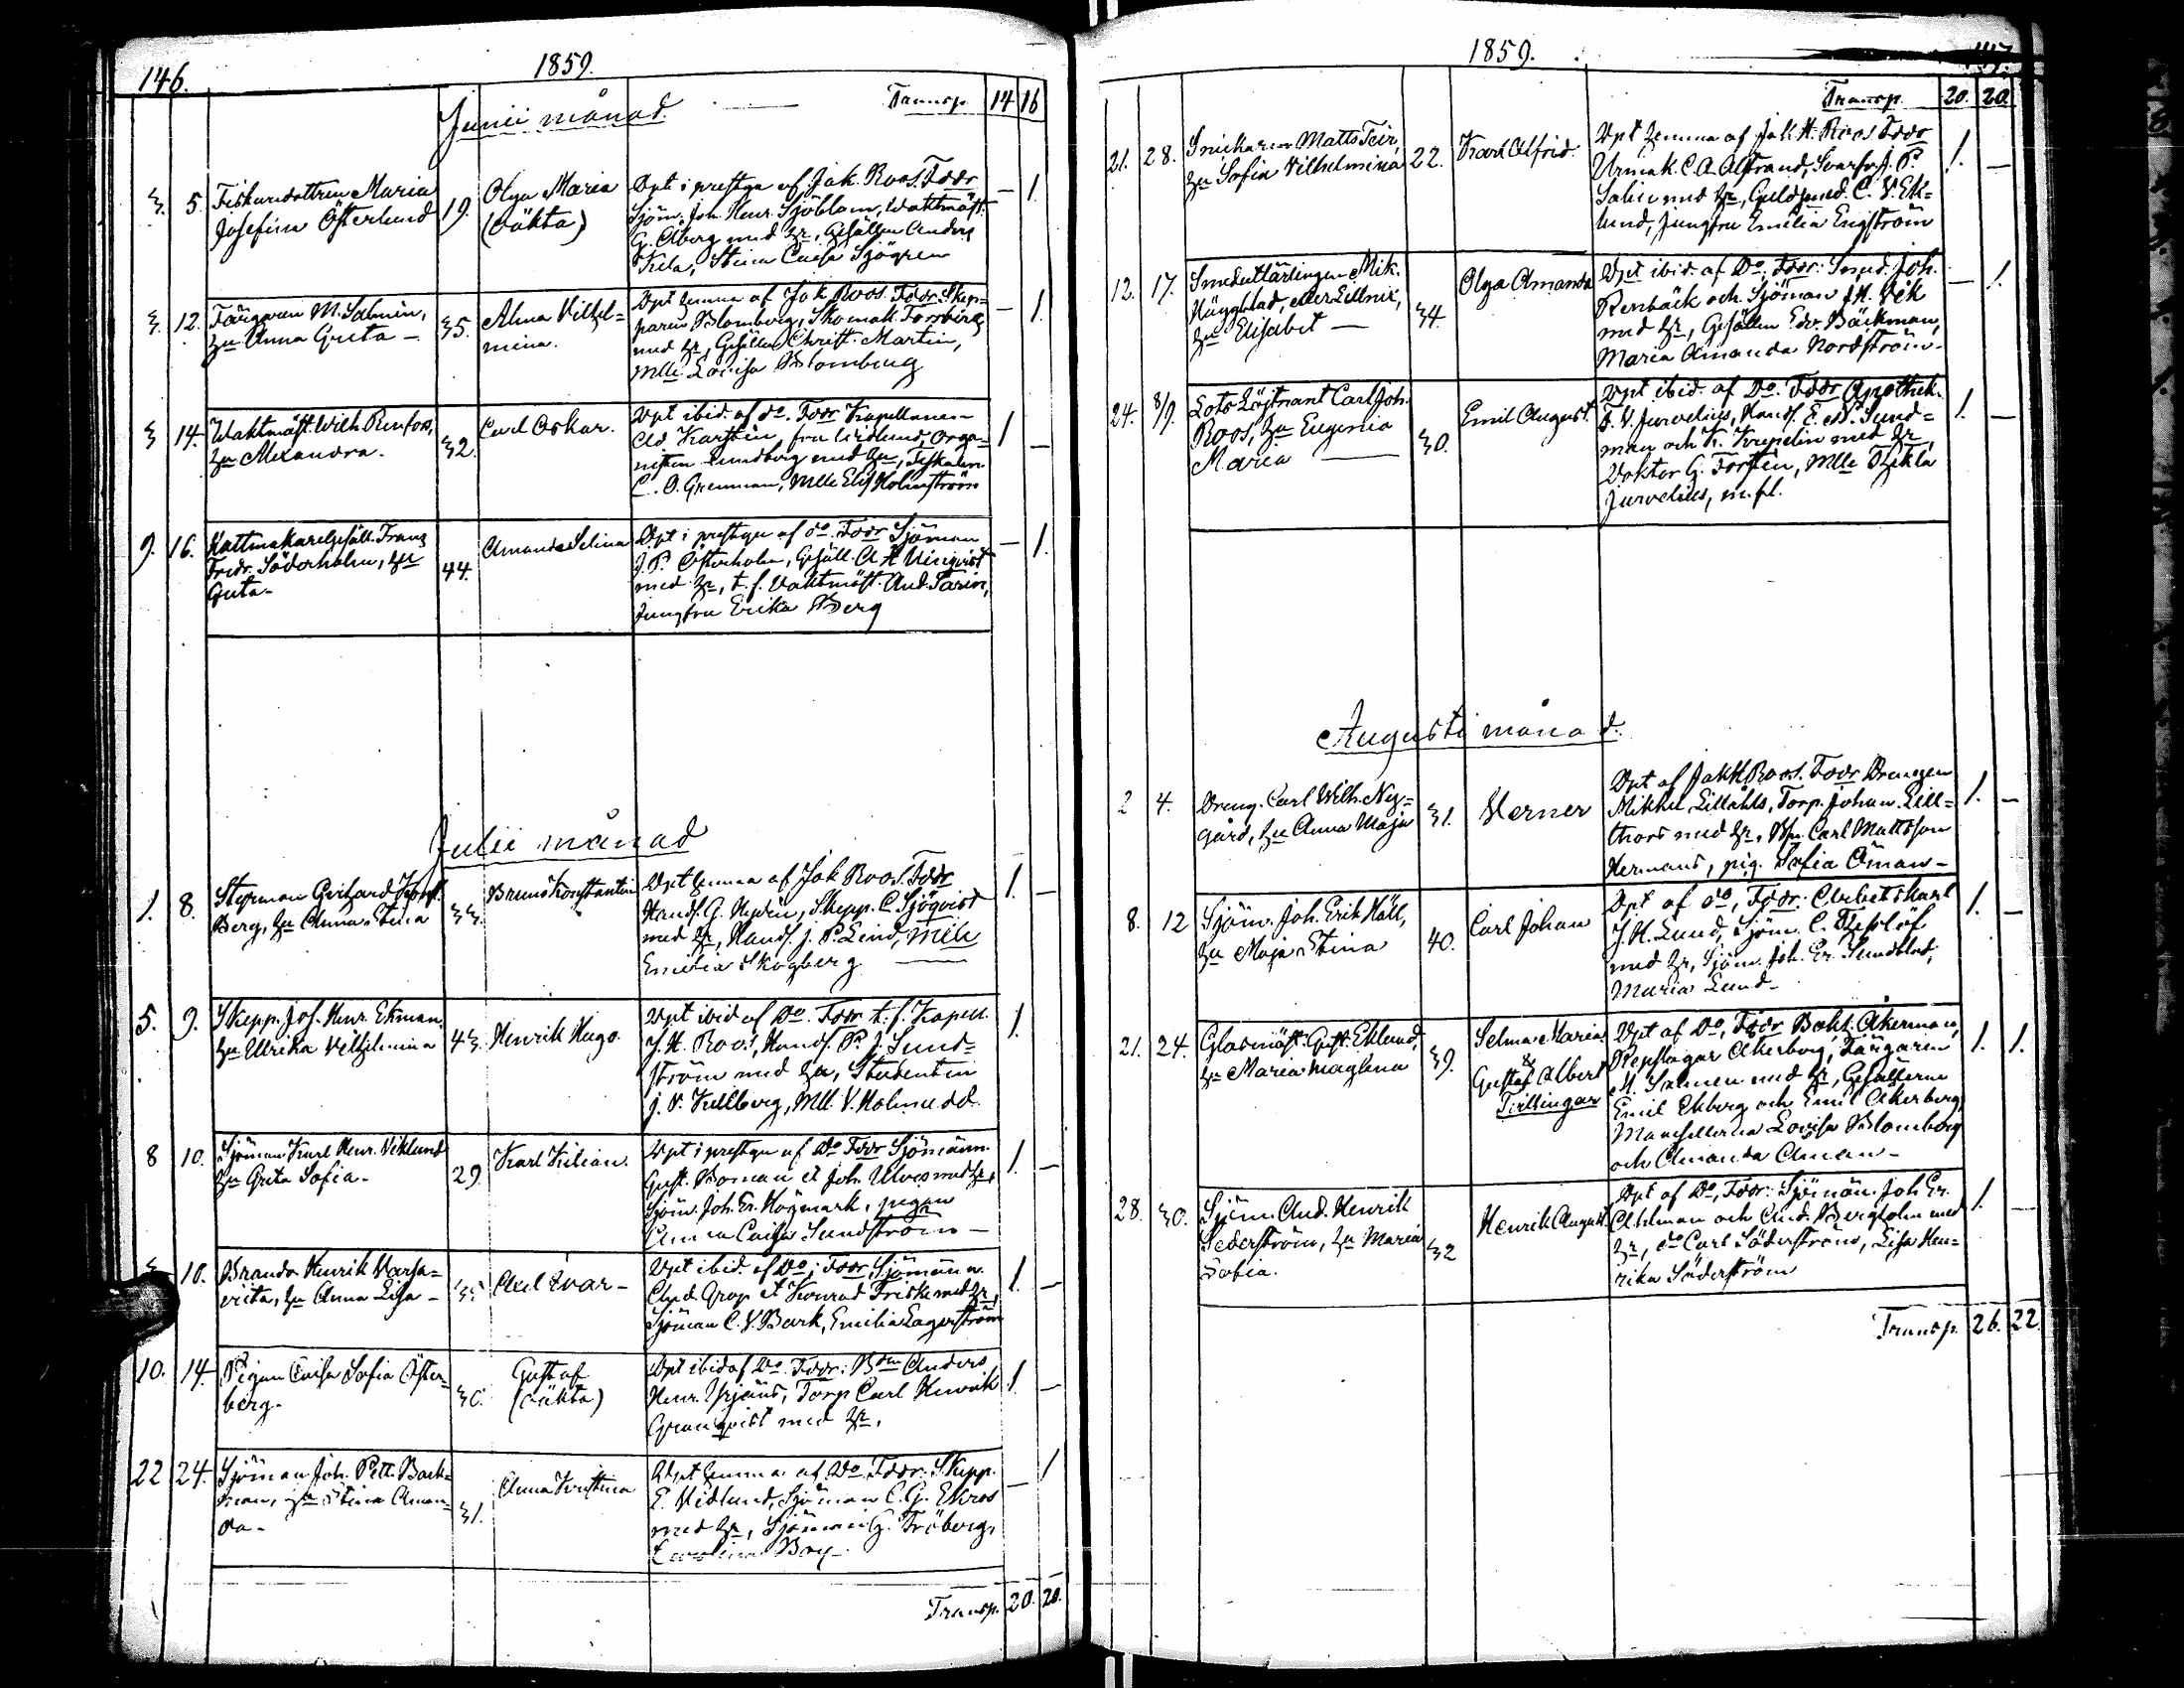 146.
1859.
Junii månad.
Transp. 14 16
3. 5. Fiskaredottren Maria
Josefina Österlund
19.
Olga Maria
(oäkta)
Dpt i prestgn af Jak. Roos. Fddr
Sjöm. Joh. Henr. Sjöblom, Waktmäst.
G. Åberg med hu, Gesällen Anders
Stina Caisa Sjögren
— 1.
3. 12. Färgaren M. Salmén,
hu Anna Greta —
35.
Alma Vilhel=
mina.
Dpt hemma af Jak Roos. Fddr: Skep=
paren Blomberg, Skomak.
med hu, Gesällen Christ. Martin,
Mlle Lovisa Blomberg
— 1.
3 14. Waktmäst. Wilh. Renfors,
hu Alexandra.
32.
Carl Oskar.
Dpt ibid. af do. Fddr Kapellanen
Ad Karsten, fru Widlund, Orga=
nisten Lundberg med hu, Fiskalen
C. O. Grenman, Mlle Elis Holmström
1 —
9. 16. Hattmakaregesäll. Franz
Fredr. Söderholm, hu
Greta.
44.
Amanda Selina
Dpt i prestgn af do. Fddr Sjöman
J. P. Österholm, Gesäll. A H Vinqvist
med hu, t. f. Vaktmäst. And.
Jungfru Erika Berg
— 1.
Julii månad
1. 8. Styrman Gerhard Konst.
Berg, hu Anna Stina
33.
Bruno Konstantin
Dpt hemma af Jak Roos. Fddr
Handl. G. Hedén, Skepp. C. Sjöqvist
med hu, Handl. J. P. Lind, Mlle
Emilia Skogberg
1. —
5. 9. Skepp. Jos. Henr. Ekman.
hu Ulrika Vilhelmina
43.
Henrik Hugo.
Dpt ibid af Do. Fddr t. f. Kapell.
J. H. Roos, Handl. P. J. Sund=
ström med hu, Studenten
J. V. Kullberg, Mll. V. Holm
1.
8 10. Sjöman Karl Henr. Viklund
hu Greta Sofia.
29.
Karl Kilian.
Dpt i prestgn af Do Fddr Sjömänn.
Gust. Boman et Joh. Ulves med hu,
Sjöm. Joh. Er. Högmark, pigan
Anna Caisa Sundström —
1. —
10. Brandv Henrik Varsa=
hu Anna Lisa —
35
Axel Ivar —
Dpt ibid. af Do; Fddr Sjömänn.
And. Grop et Konrad Frisk med hu,
Sjöman C. V. Bark, Emilia Lagerström
1. —
10. 14. Pigan Caisa Sofia Öster=
berg.
30.
Gustaf
(oäkta)
Dpt ibid af Do. Fddr: Bdn Anders
Henr. Yrjans, Torp Carl Henrik
Granqvist med hu.
1. —
22 24. Sjöman Joh. Pett. Back=
man, hu Stina Aman=
da.
31.
Anna Kristina
Dpt hemma af Do. Fddr: Skepp.
E. Vidlund, Sjöman C. G. Ekros
med hu, Sjöman G. Fröberg,
Carolina Boy.
— 1
Transp. 20. 20.
1859.
147.
Transp. 20. 20.
21. 28. Snickaren Matts Teir,
hu Sofia Vilhelmina
22.
Karl Alfrid.
Dpt hemma af Jak H. Roos Fddr
Urmak. C. A. Alstrand, Svarfv. J. P.
Salin med hu, Guldsmed. C. V. Ek=
lund, Jungfru Emilia Engström
1. —
12. 17. Smedutlärlingen Mik.
Häggblad, eller Lillnix,
hu Elisabet —
34.
Olga Amanda
Dpt ibid. af Do. Fddr: Smed. Joh.
Renbäck och Sjöman J. H. Vik
med hu, Gesällen Edv. Bäckman,
Maria Amanda Nordström.
— 1.
24. 8/9. Lots Löjtnant Carl Joh.
Roos, hu Eugenia
Maria —
30.
Emil August.
Dpt ibid. af Do. Fddr Apothek.
F. V. Jurvelius, Handl. E. M. Sund=
man och K. Krepelin med hu,
Doktor G. Forstén, Mlle Thekla
Jurvelius, m.fl.
1. —
Augusti månad.
2 4. Dreng. Carl Wilh. Ny=
gård, hu Anna Maja
31.
Verner
Dpt af Jak H Roos. Fddr Drengen
Mikkel Lillåhls, Torp. Johan Lill=
thors med hu, Bn Carl Mattsson
Hermans, pig. Sofia Öman —
1. —
8. 12 Sjöm. Joh. Erik Häll,
hu Maja Stina
40.
Carl Johan
Dpt af do, Fddr: Arbetskarl
J. H. Lund, Sjöm. C. Theslöf
med hu, Sjöm. Joh. Er. Sundblad,
Maria Lund.
1. —
21. 24. Glasmäst. Gust. Eklund,
hu Maria Maglena
39.
Selma Maria
&
Gustaf Albert
Tvillingar
Dpt af Do, Fddr Bokh. Åkerman,
Repslagar Åkerberg, Färgaren
M. Salmen med hu, Gesällerne
Emil Ekberg och Emil Åkerberg,
Mamsellerna Lovisa Blomberg
och Amanda Åman —
1. 1.
28. 30. Sjöm. And. Henrik
Sederström, hu Maria
Sofia.
32
Henrik August.
Dpt af Do, Fddr: Sjömän. Joh Er.
Ahlman och And. Bergholm med
hu, do Carl Söderström, Lisa Hen=
rika Söderström
1. —
Transp. 26. 22.